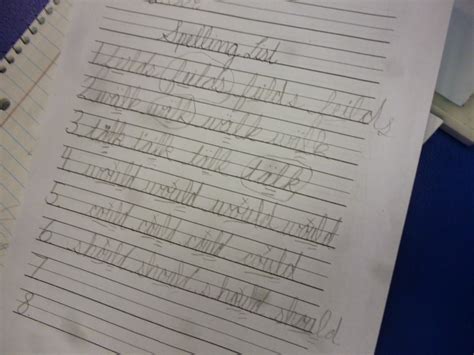 Spelling List
1 fields
2 walk walk walk walk
3 talk talk talk talk
4 would would would would
5 could could could could
6 should should should should
7
8